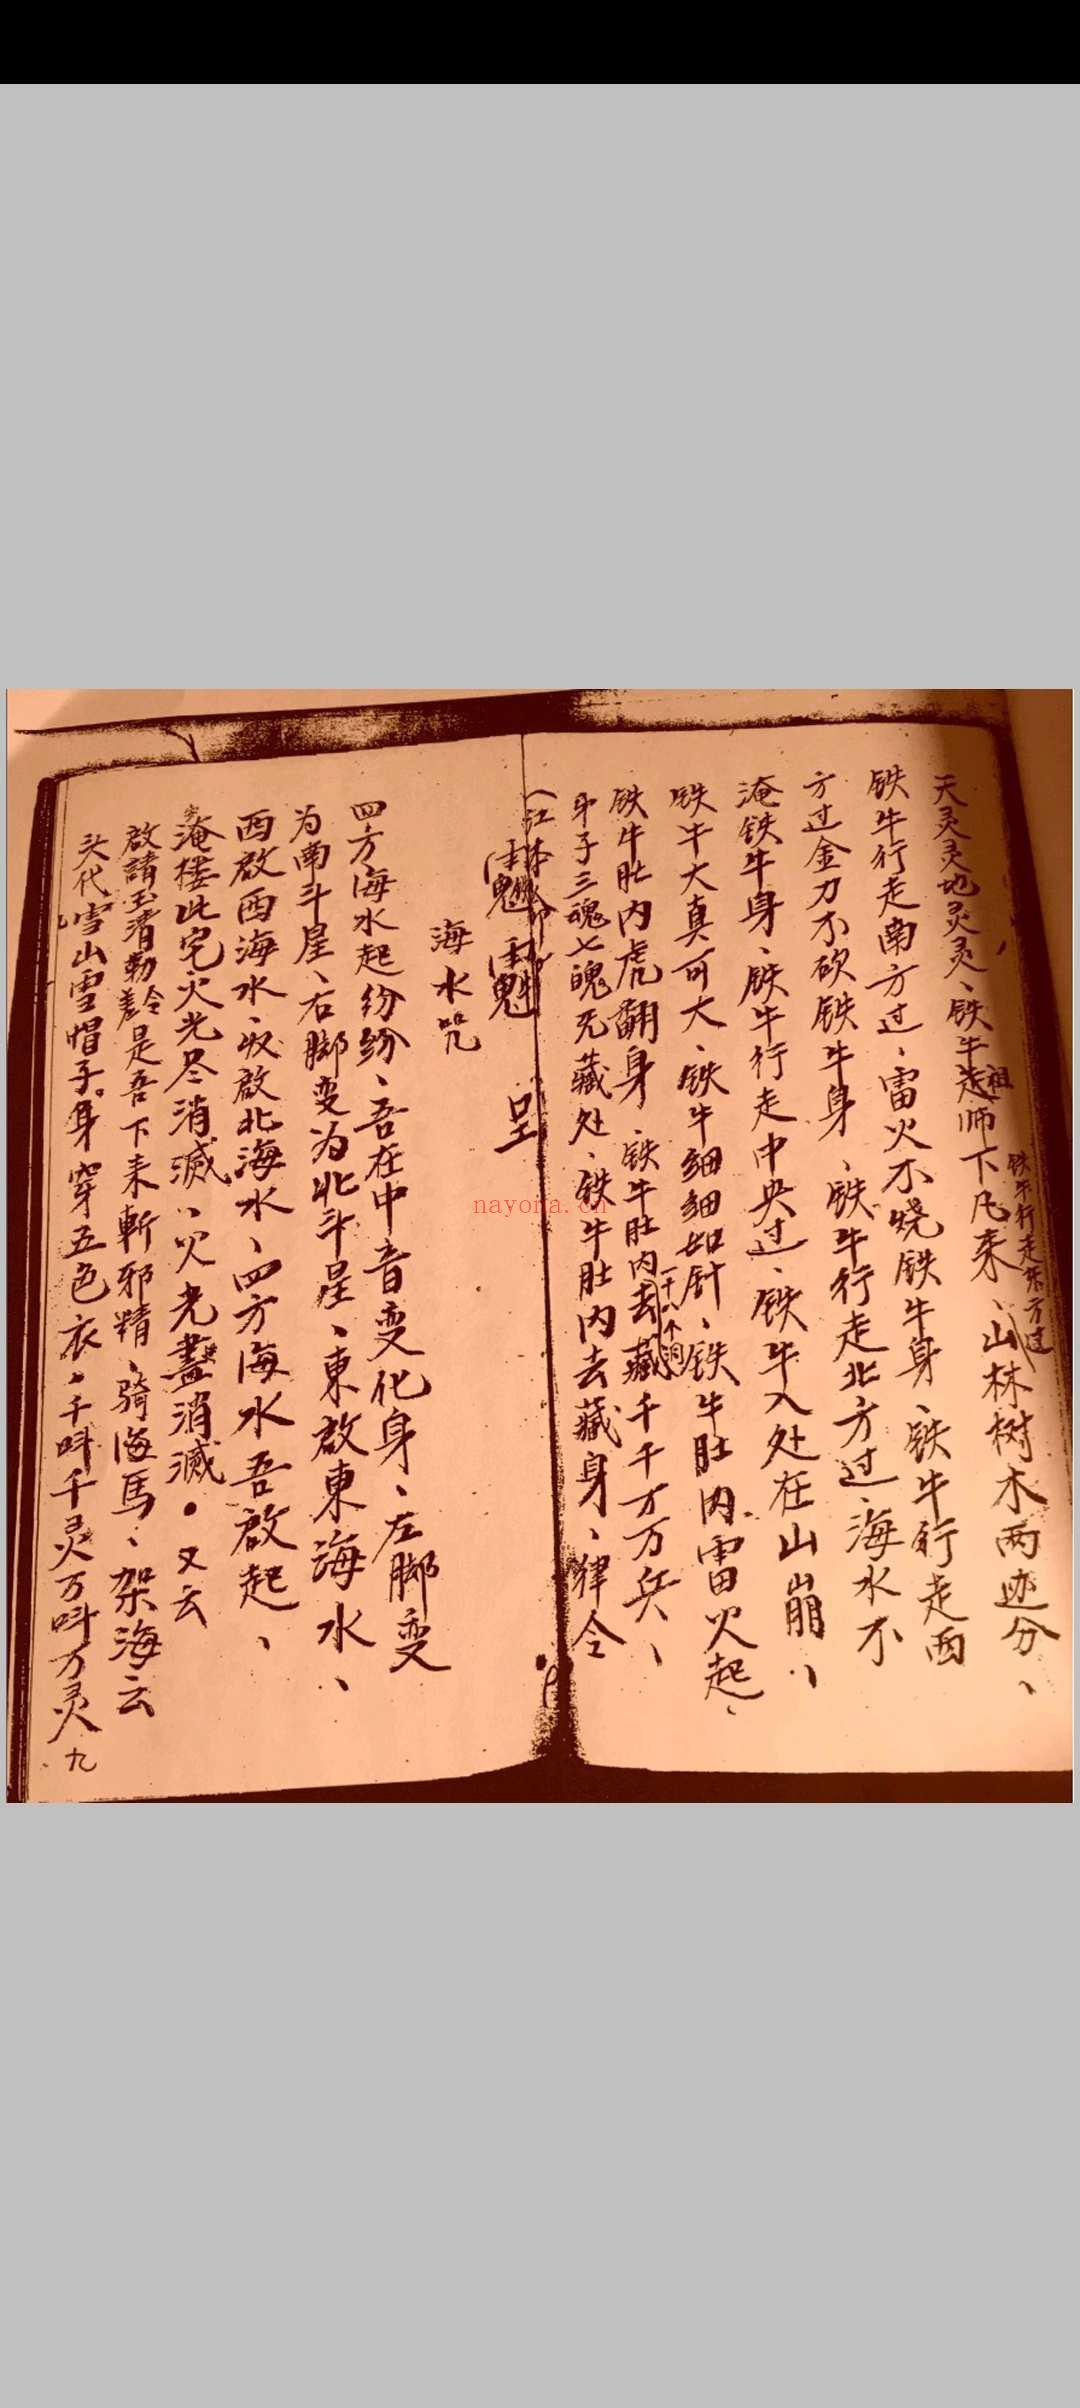 天灵灵地灵灵、铁牛祖师下凡来、山林树木两边分、
铁牛行走东方过
铁牛行走南方过、雷火不烧铁牛身、铁牛行走西
方过金刀不砍铁牛身、铁牛行走北方过、海水不
淹铁牛身、铁牛行走中央过、铁牛入处在山崩、
铁牛大真可大、铁牛细细如针、铁牛肚内雷火起、
铁牛肚内虎翻身、铁牛肚内去藏千千万万兵、
一十八个洞
弟子三魂七魄无藏处、铁牛肚内去藏身、律令
海水咒
四方海水起纷纷、吾在中音变化身、左脚变
为南斗星、右脚变为北斗星、東啟東海水、
西啟西海水、收啟北海水、四方海水吾啟起、
淹楼此宅火光尽消滅、火光盡消滅。又云
啟請玉清勅令差是吾下来斬邪精、骑海馬、架海云
头代雪山雪帽子。身穿五色衣。千叫千灵万叫万灵
九
nayona.cn